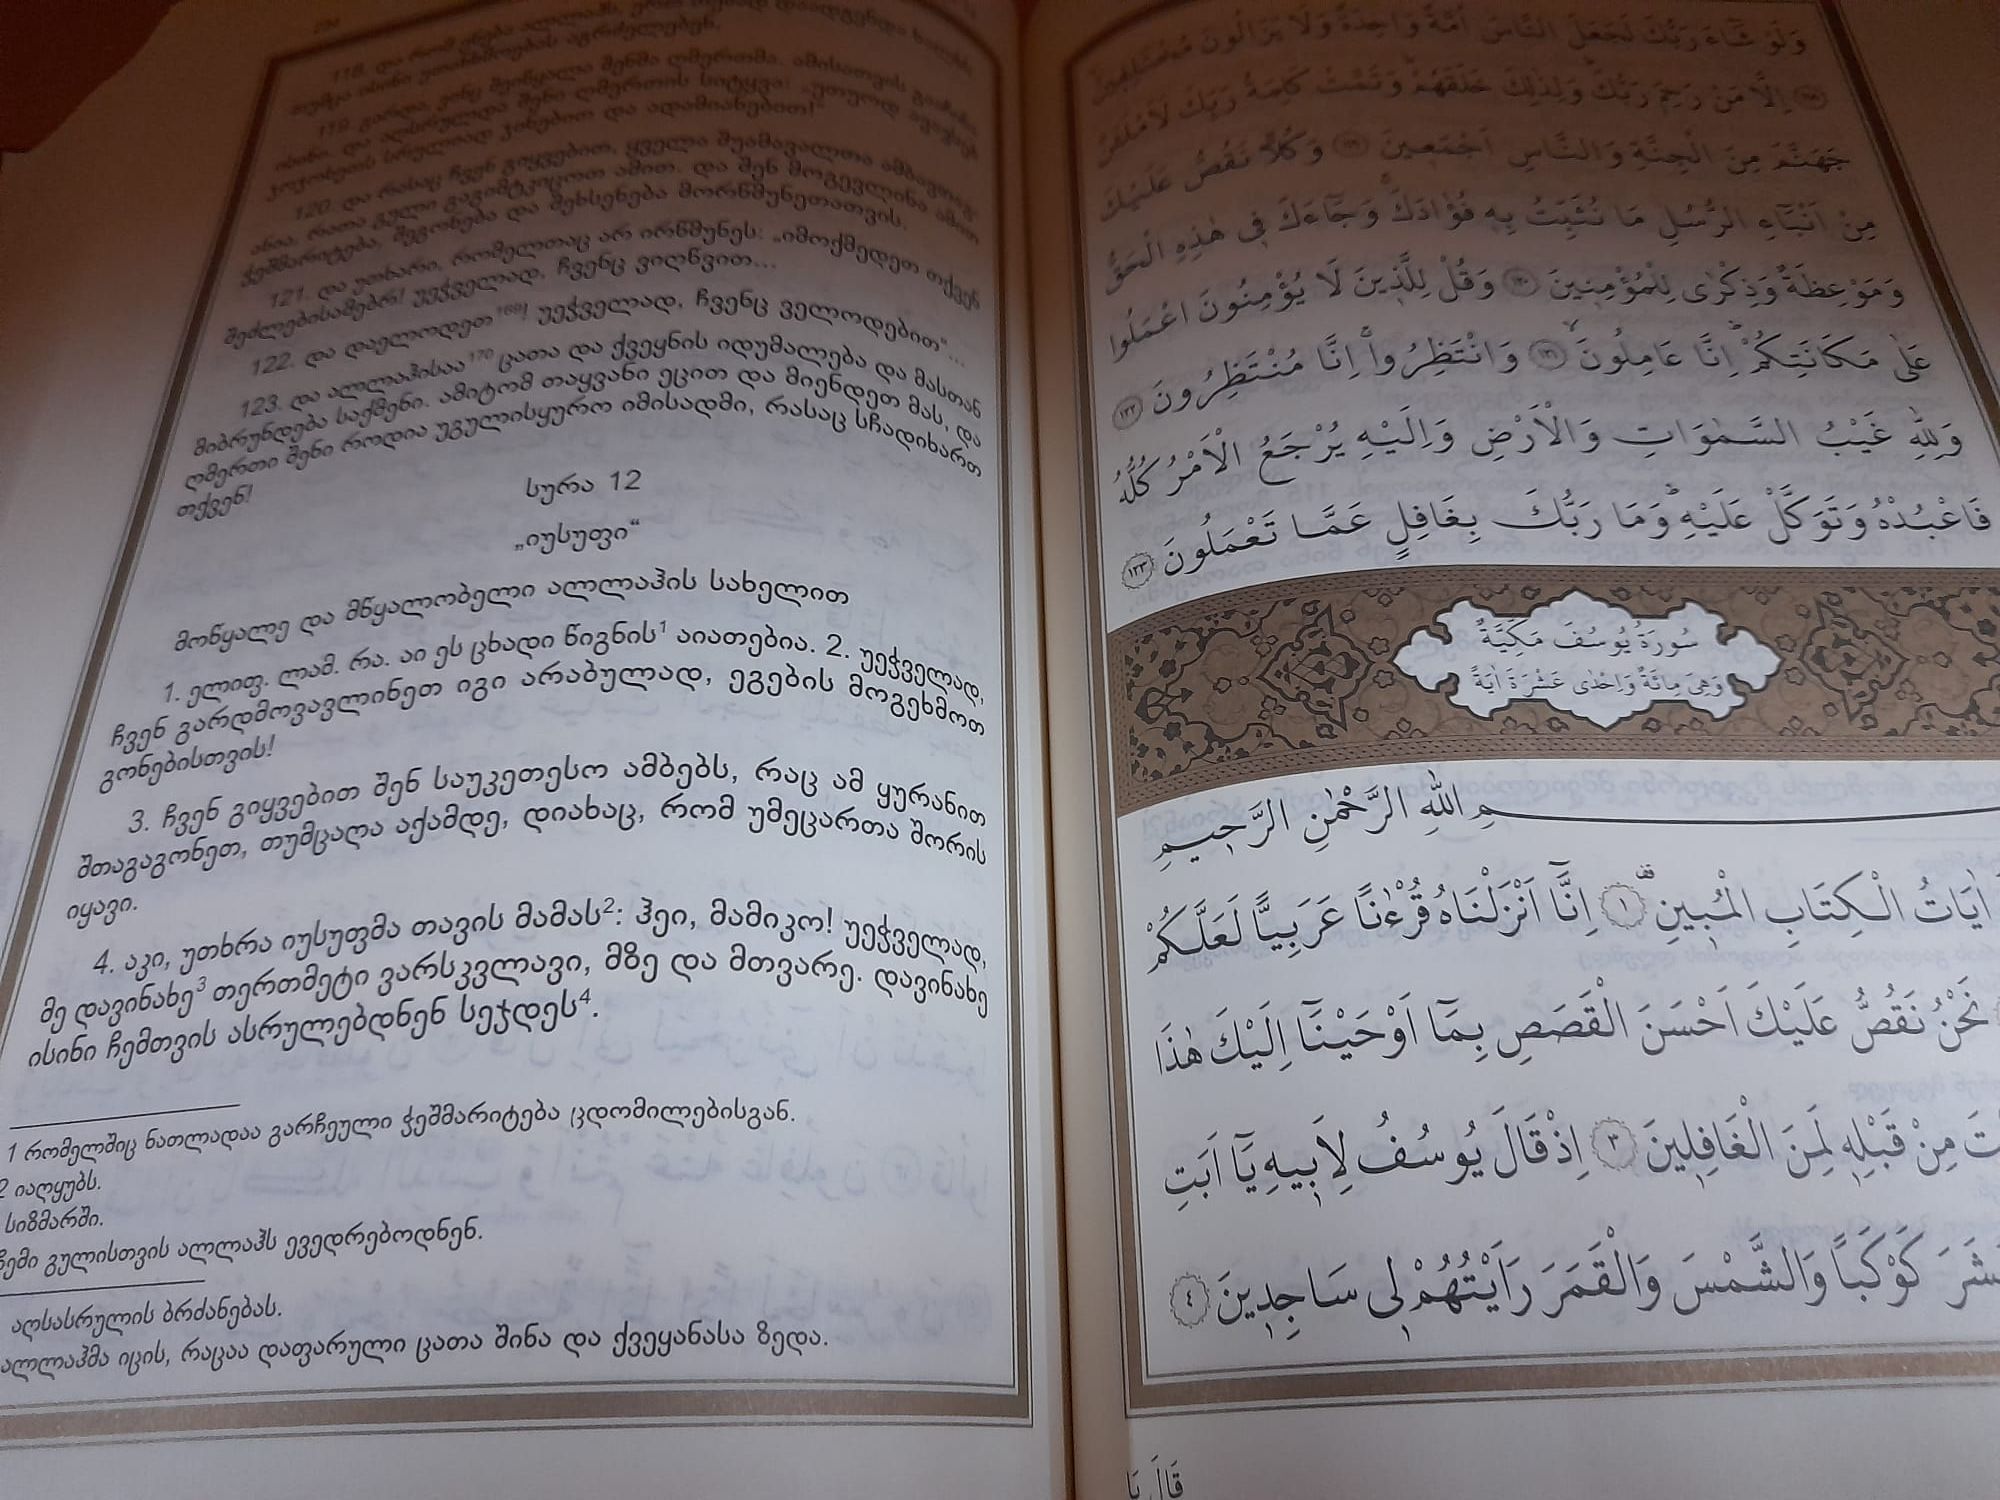 118. და რომ ენება ალლაჰს, ერთ თემად დაადგენდა ხალხს.
თუმცა ისინი უთანხმოებას აგრძელებენ.
119. გარდა, ვინც შეიწყალა შენმა ღმერთმა. ამისათვის გააჩინა
ისინი. და აღსრულდა შენი ღმერთის სიტყვა: „უთუოდ ავავსებ
ჯოჯოხეთს სრულიად ჯინებით და ადამიანებით!“
120. და რასაც ჩვენ გიყვებით, ყველა შუამავალთა ამბავთაგ-
ანია, რათა გული გაგიმტკიცოთ ამით. და შენ მოგევლინა ამით
ჭეშმარიტება, შეგონება და შეხსენება მორწმუნეთათვის.
121. და უთხარი, რომელთაც არ ირწმუნეს: „იმოქმედეთ თქვენ
შეძლებისამებრ! უეჭველად, ჩვენც ვიღწვით...
122. და დაელოდეთ169! უეჭველად, ჩვენც ველოდებით“...
123. და ალლაჰისაა170 ცათა და ქვეყნის იდუმალება და მასთან
მიბრუნდება საქმენი. ამიტომ თაყვანი ეცით და მიენდეთ მას, და
ღმერთი შენი როდია უგულისყურო იმისადმი, რასაც სჩადიხართ
თქვენ!
სურა 12
„იუსუფი“
მოწყალე და მწყალობელი ალლაჰის სახელით
1. ელიფ. ლამ. რა. აი ეს ცხადი წიგნის1 აიათებია. 2. უეჭველად,
ჩვენ გარდმოვავლინეთ იგი არაბულად, ეგების მოგეხმოთ
გონებისთვის!
3. ჩვენ გიყვებით შენ საუკეთესო ამბებს, რაც ამ ყურანით
შთაგაგონეთ, თუმცაღა აქამდე, დიახაც, რომ უმეცართა შორის
იყავი.
4. აკი, უთხრა იუსუფმა თავის მამას2: ჰეი, მამიკო! უეჭველად,
მე დავინახე3 თერთმეტი ვარსკვლავი, მზე და მთვარე. დავინახე
ისინი ჩემთვის ასრულებდნენ სეჯდეს4.
1 რომელშიც ნათლადაა გარჩეული ჭეშმარიტება ცდომილებისგან.
2 იაღყუბს.
სიზმარში.
ჩემი გულისთვის ალლაჰს ევედრებოდნენ.
აღსასრულის ბრძანებას.
ალლაჰმა იცის, რაცაა დაფარული ცათა შინა და ქვეყანასა ზედა.
وَلَوْ شَٓاءَ رَبُّكَ لَجَعَلَ النَّاسَ اُمَّةً وَاحِدَةً وَلَا يَزَالُونَ مُخْتَلِفِينَۙ
﴿١١٨﴾ اِلَّا مَنْ رَحِمَ رَبُّكَۜ وَلِذٰلِكَ خَلَقَهُمْۜ وَتَمَّتْ كَلِمَةُ رَبِّكَ لَاَمْلَـَٔنَّ
جَهَنَّمَ مِنَ الْجِنَّةِ وَالنَّاسِ اَجْمَعِينَ ﴿١١٩﴾ وَكُلًّا نَقُصُّ عَلَيْكَ
مِنْ اَنْبَٓاءِ الرُّسُلِ مَا نُثَبِّتُ بِهِ فُؤٰادَكَۚ وَجَٓاءَكَ فِى هٰذِهِ الْحَقُّ
وَمَوْعِظَةٌ وَذِكْرٰى لِلْمُؤْمِنِينَ ﴿١٢٠﴾ وَقُلْ لِلَّذِينَ لَا يُؤْمِنُونَ اعْمَلُوا
عَلٰى مَكَانَتِكُمْۜ اِنَّا عَامِلُونَۙ ﴿١٢١﴾ وَانْتَظِرُواۚ اِنَّا مُنْتَظِرُونَ ﴿١٢٢﴾
وَلِلّٰهِ غَيْبُ السَّمٰوَاتِ وَالْاَرْضِ وَاِلَيْهِ يُرْجَعُ الْاَمْرُ كُلُّهُ
فَاعْبُدْهُ وَتَوَكَّلْ عَلَيْهِۜ وَمَا رَبُّكَ بِغَافِلٍ عَمَّا تَعْمَلُونَ ﴿١٢٣﴾
سُورَةُ يُوسُفَ مَكِّيَّةٌ
وَهِىَ مِائَةٌ وَاِحْدٰى عَشْرَةَ اٰيَةً
ـمِ اللّٰهِ الرَّحْمٰنِ الرَّحِيمِ
اٰيَاتُ الْكِتَابِ الْمُبِينِ۠ ﴿١﴾ اِنَّٓا اَنْزَلْنَاهُ قُرْءٰنًا عَرَبِيًّا لَعَلَّكُمْ
نَحْنُ نَقُصُّ عَلَيْكَ اَحْسَنَ الْقَصَصِ بِمَٓا اَوْحَيْنَٓا اِلَيْكَ هٰذَا
مِنْ قَبْلِهِ لَمِنَ الْغَافِلِينَ ﴿٣﴾ اِذْ قَالَ يُوسُفُ لِاَبِيهِ يَٓا اَبَتِ
كَوْكَبًا وَالشَّمْسَ وَالْقَمَرَ رَاَيْتُهُمْ لِى سَاجِدِينَ ﴿٤﴾
قَالَ يَا